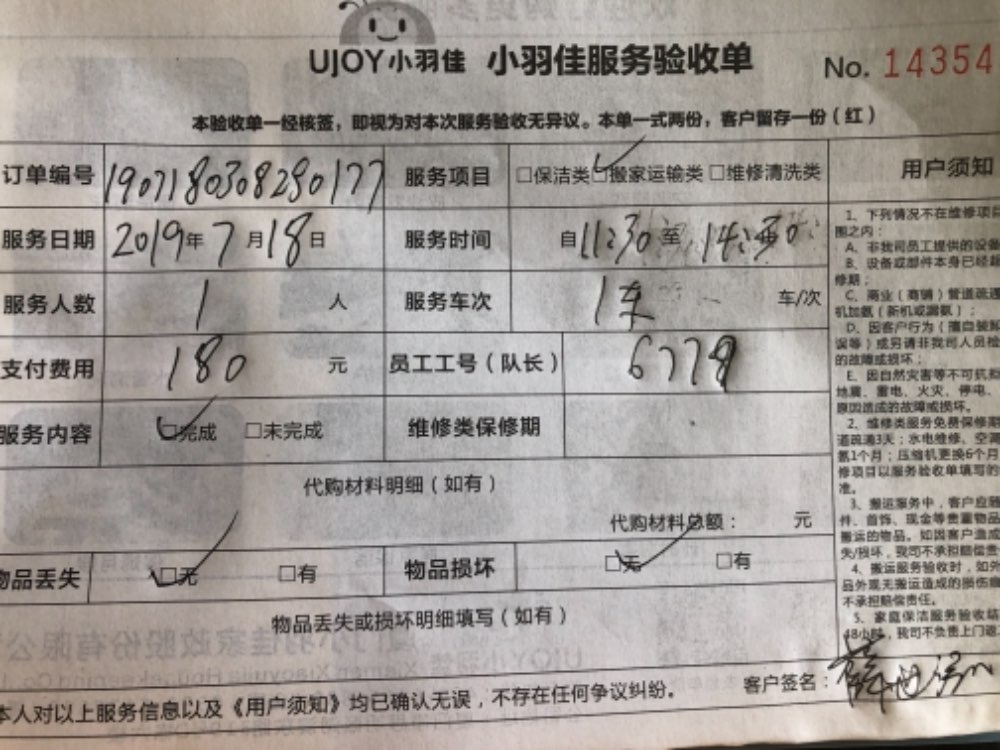 UJOY小羽佳 小羽佳服务验收单 No. 14354
本验收单一经核签，即视为对本次服务验收无异议。本单一式两份，客户留存一份（红）
订单编号 1907180308280177 服务项目 □保洁类 □搬家运输类 □维修清洗类
服务日期 2019年7月18日 服务时间 自11:30至14:30
服务人数 1 人 服务车次 1车 车/次
支付费用 180 元 员工工号（队长） 6778
服务内容 □完成 □未完成 维修类保修期
代购材料明细（如有）
代购材料总额： 元
物品丢失 □无 □有 物品损坏 □无 □有
物品丢失或损坏明细填写（如有）
本人对以上服务信息以及《用户须知》均已确认无误，不存在任何争议纠纷。
客户签名：
用户须知
1、下列情况不在维修项目
围之内：
A、非我司员工提供的设备
B、设备或部件本身已经超
修期；
C、商业（商铺）管道疏通
机加氨（新机或漏氨）；
D、因客户行为（擅自装卸
误等）或另请非我司人员检
的故障或损坏；
E、因自然灾害等不可抗拒
地震、雷电、火灾、停电、
原因造成的故障或损坏。
2、维修类服务免费保修期
道疏通3天；水电维修、空调
氨1个月；压缩机更换6个月
修项目以服务验收单填写的
准。
3、搬运服务中，客户应随
件、首饰、现金等贵重物品
搬运的物品。如因客户造成
失/损坏，我司不承担赔偿责
4、搬运服务验收时，如外
品外观无搬运造成的损伤痕
不承担赔偿责任。
5、家庭保洁服务验收结
48小时，我司不负责上门返